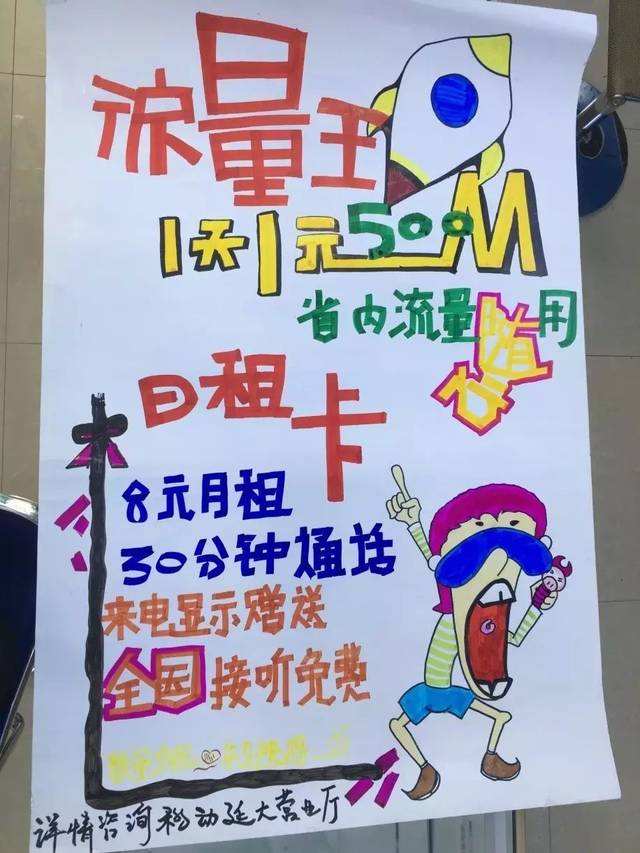 流量王
1天1元500M
省内流量随心用
日租卡
8元月租
30分钟通话
来电显示赠送
全国接听免费
详情咨询移动延大营业厅